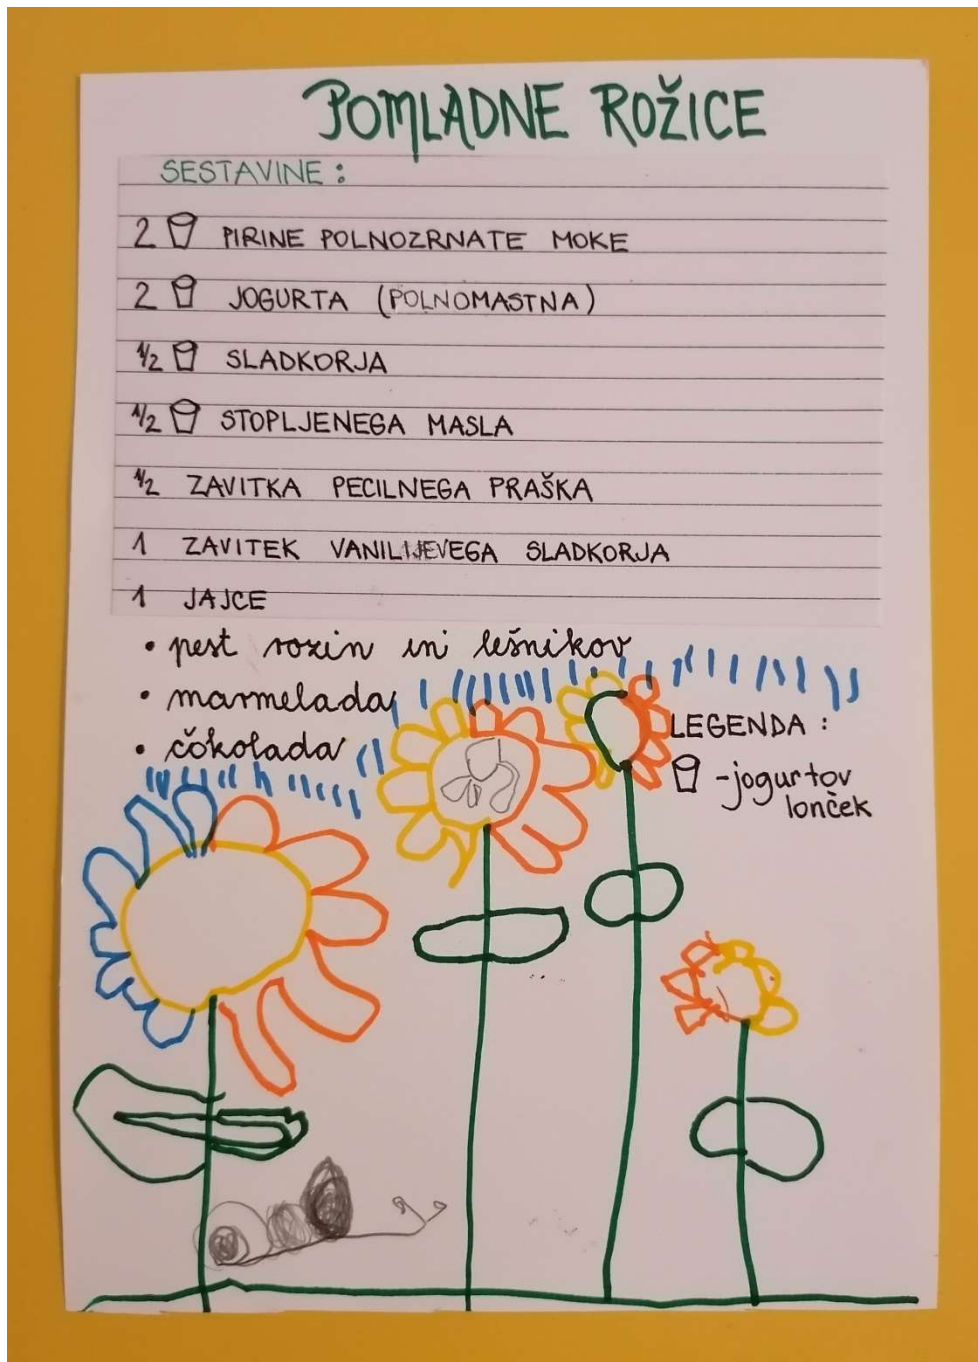 POMLADNE ROŽICE
SESTAVINE :
2 PIRINE POLNOZRNATE MOKE
2 JOGURTA (POLNOMASTNA)
1/2 SLADKORJA
1/2 STOPLJENEGA MASLA
1/2 ZAVITKA PECILNEGA PRAŠKA
1 ZAVITEK VANILIJEVEGA SLADKORJA
1 JAJCE
• pest rozin in lešnikov
• marmelada
• čokolada
LEGENDA :
-jogurtov
lonček